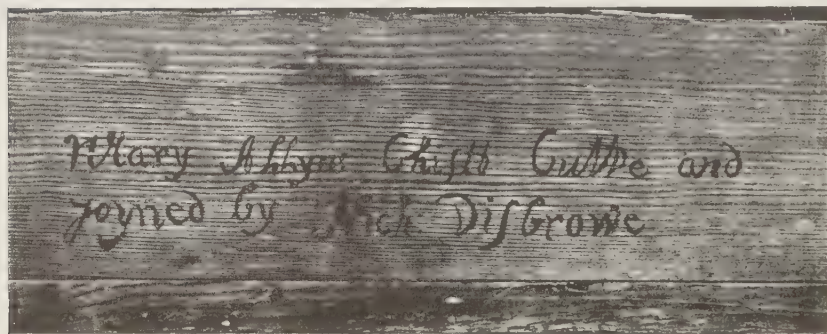 Mary Allyns Chistt Cutte and
joyned by Nich Disbrowe